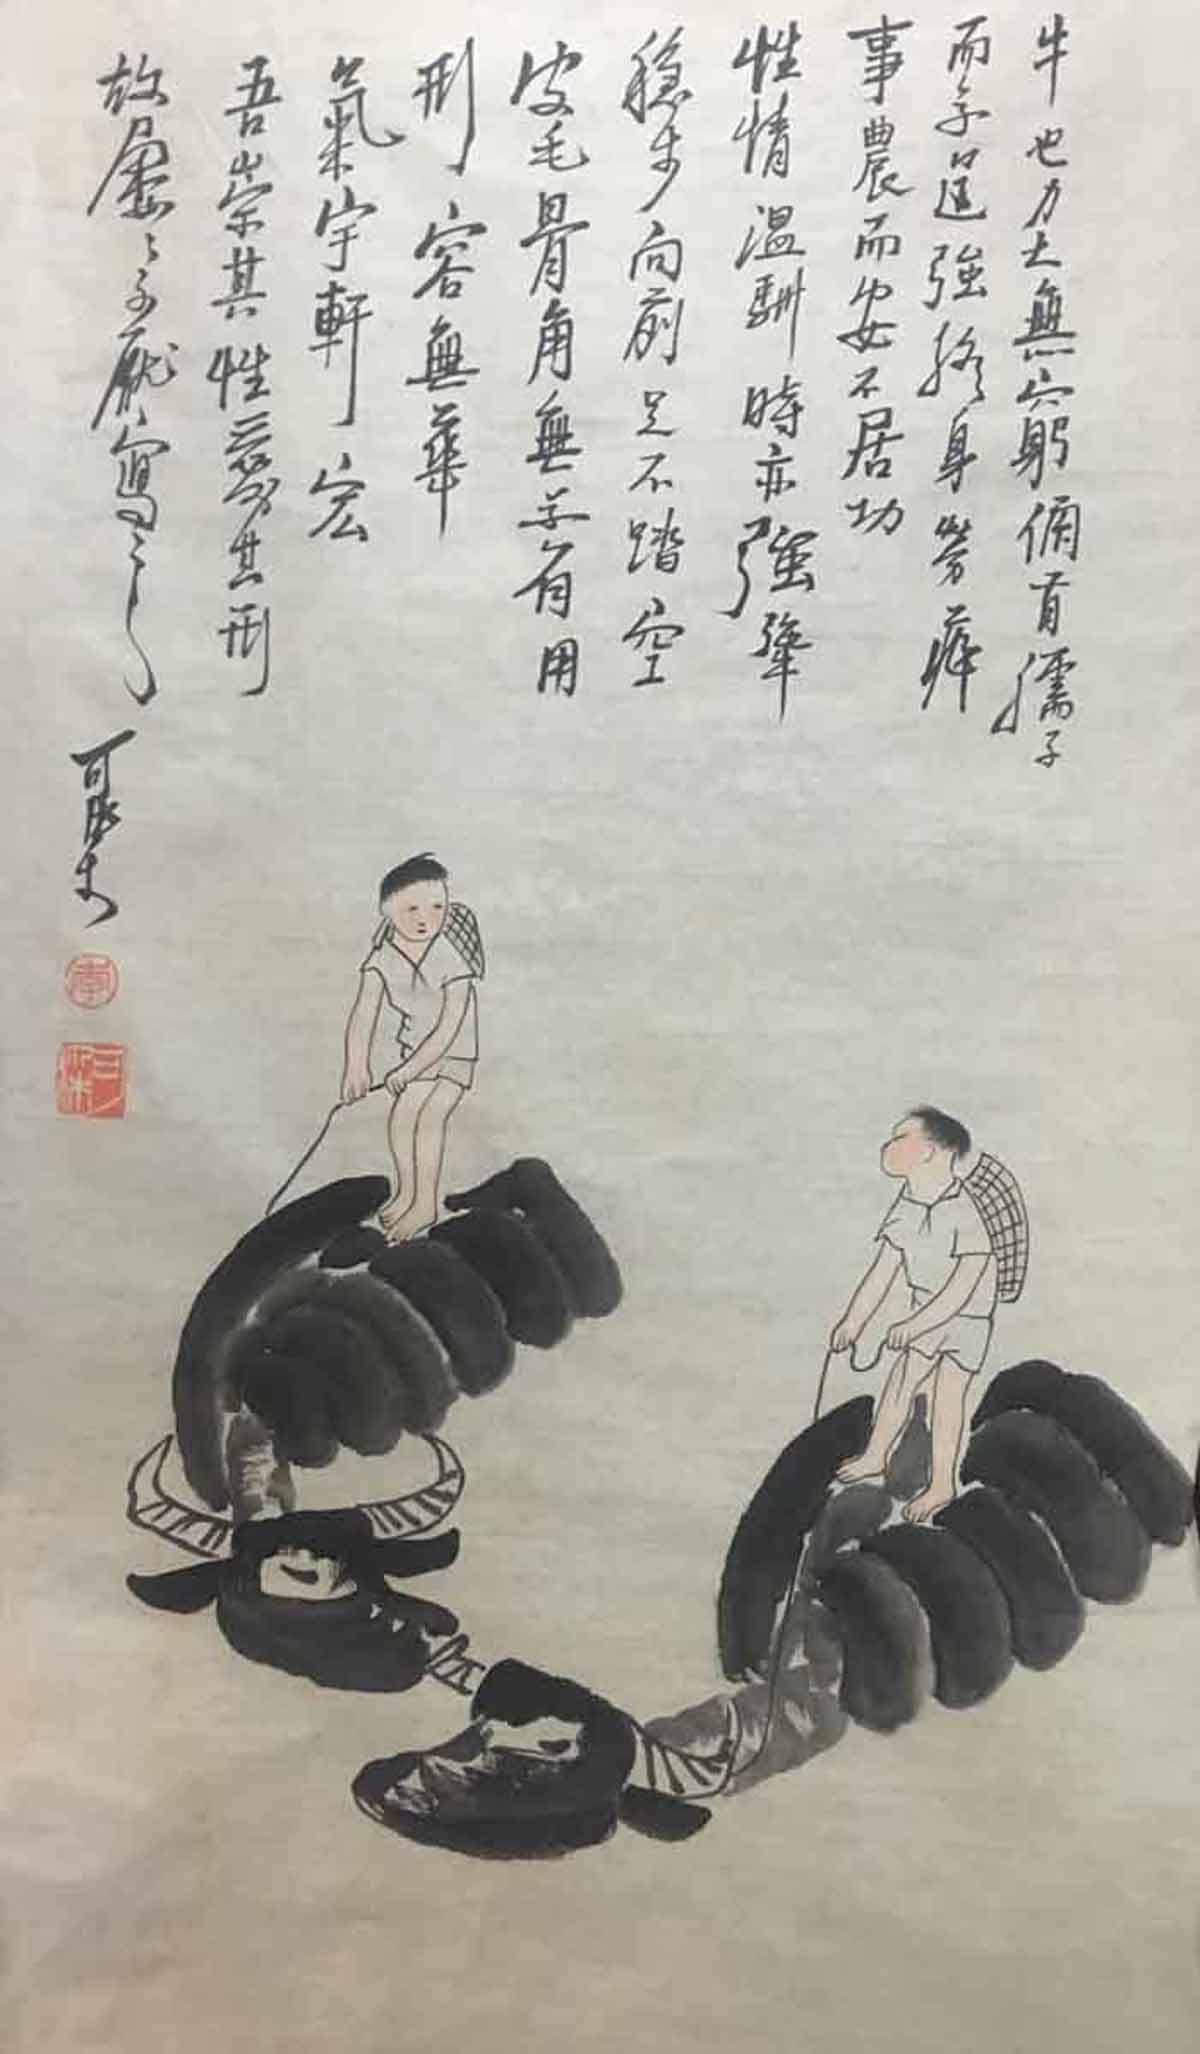 牛也力大無窮俯首孺子
而不逞強終身勞瘁
事農而安不居功
性情溫馴時亦強犟
穩步向前足不踏空
皮毛骨角無不有用
形容無華
氣宇軒宏
吾崇其性愛其形
故屢屢不厭寫之
可染
李